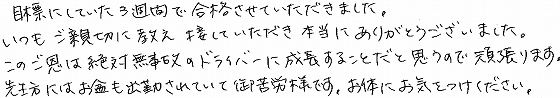 目標にしていた3週間で合格させていただきました。
いつもご親切に教え接していただき本当にありがとうございました。
このご恩は絶対無事故のドライバーに成長することだと思うので頑張ります。
先生方にはお盆も出勤されていて御苦労様です。お体にお気をつけください。